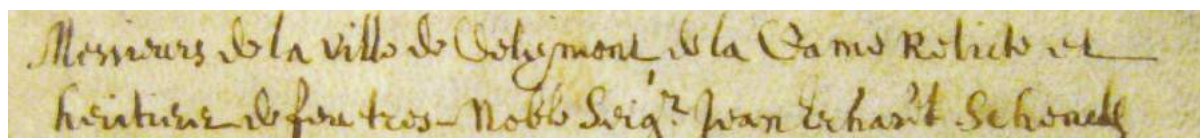 Messieurs de la Ville de Delsmont, de la Dame Relicte et
heritiers de feu tres-Noble Seigr. Jean Erhardt Schenck